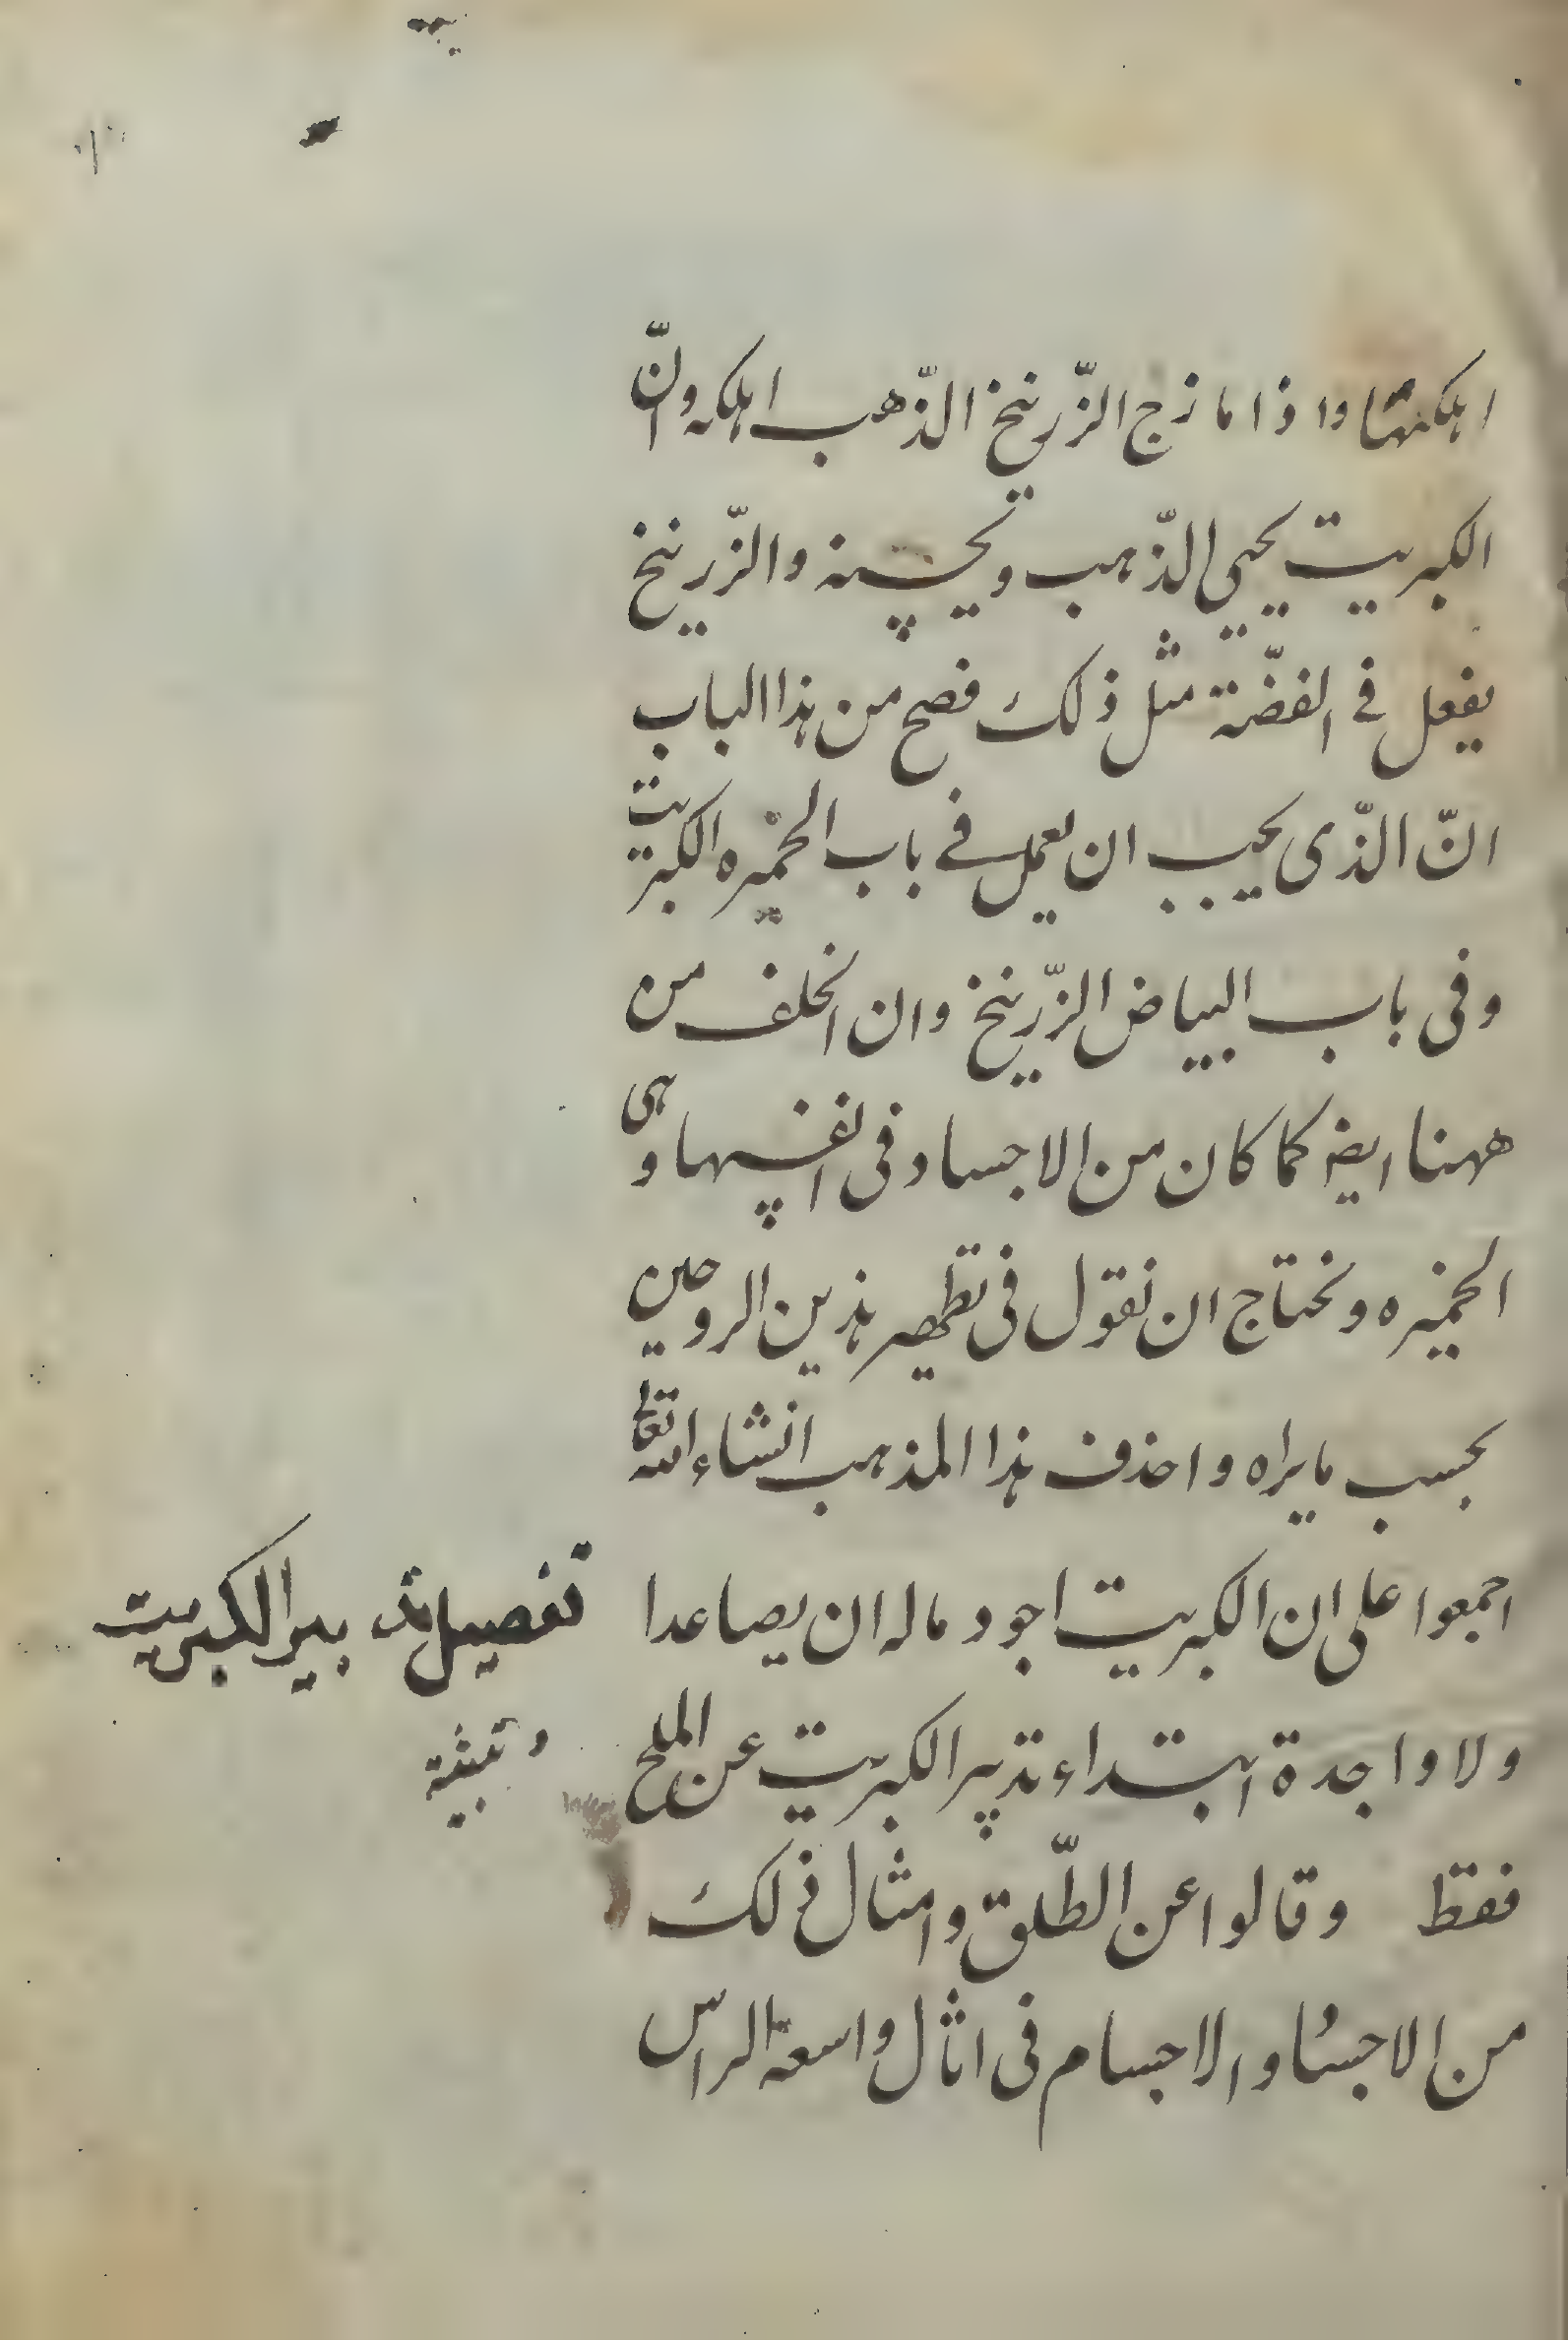 اهلكتها واذا مازج الزّرنيخ الذّهب اهلكه وانّ
الكبريت يحيي الذّهب ويحسنه والزّرنيخ
يفعل في الفضّة مثل ذلك فصح من هذا الباب
انّ الذّى يجب ان يعمل في باب الحمره الكبريت
وفى باب البياض الزّرنيخ وان الخلف من
ههنا ايض كما كان من الاجساد فى انفسها وهى
الخميره ونحتاج ان نقول فى تطهير هذين الروحين
بحسب مايراه واحذف هذا المذهب انشاء الله تعالى
اجمعوا على ان الكبريت اجود ماله ان يصاعدا
تفصيل تدبير الكبريت
ولا واحدة ابتداء تدبير الكبريت عن الملح
فقط وقالوا عن الطّلق وامثال ذلك
من الاجساد والاجسام فى اثال واسعة الراس